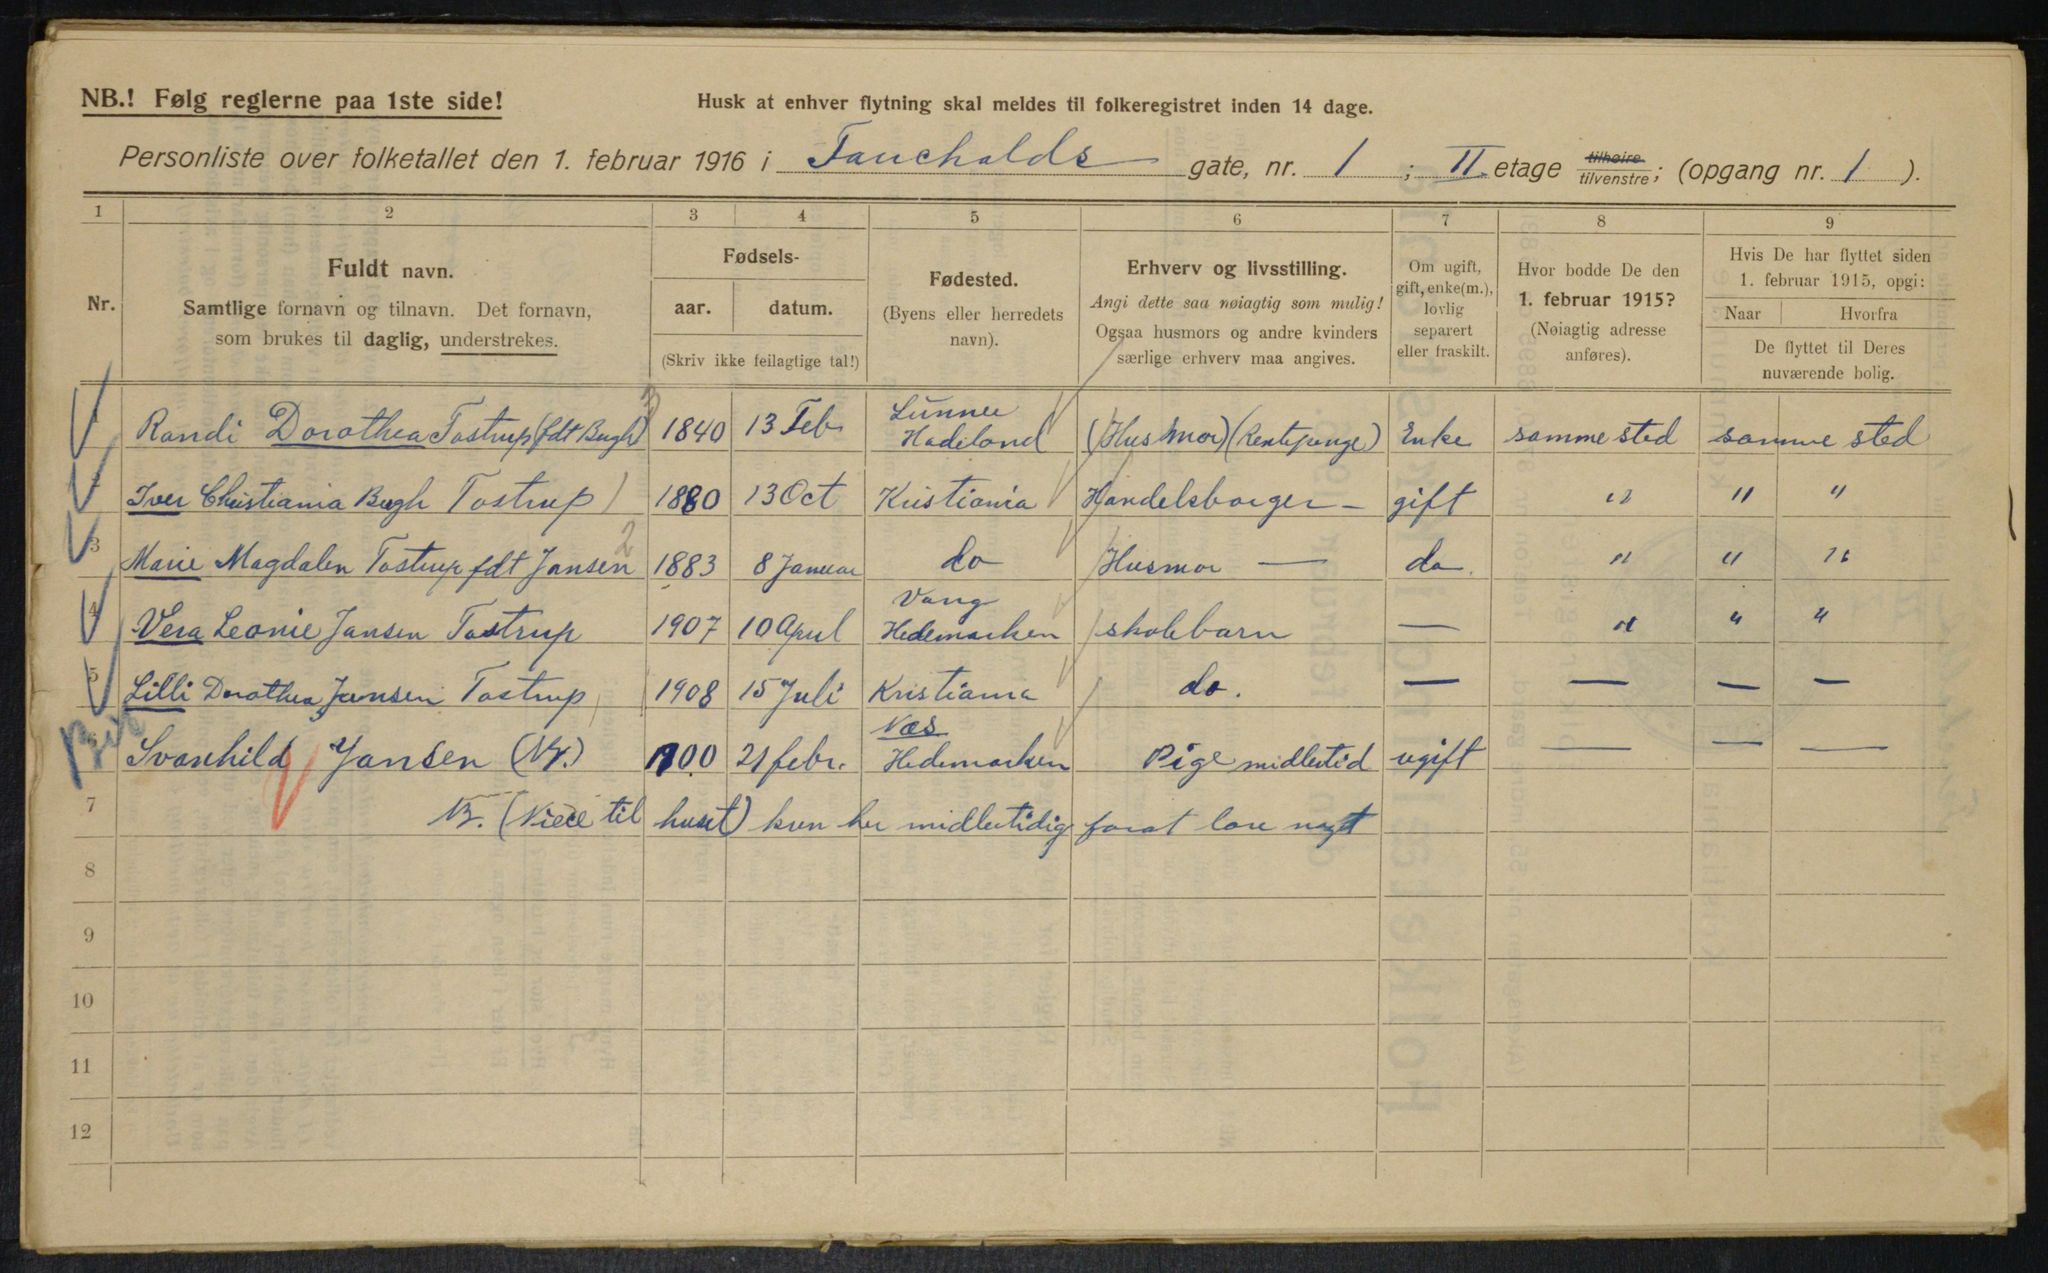 NB.! Følg reglerne paa 1ste side!
Husk at enhver flytning skal meldes til folkeregistret inden 14 dage.
Personliste over folketallet den 1. februar 1916 i Fauchalds gate, nr. 1 ; II. etage tilhøire tilvenstre; (opgang nr. 1 ).
1 2 3 4 5 6 7 8 9
Nr.
Fuldt navn.
Samtlige fornavn og tilnavn. Det fornavn,
som brukes til daglig, understrekes.
Fødsels-
aar. datum.
(Skriv ikke feilagtige tal!)
Fødested.
(Byens eller herredets
navn).
Erhverv og livsstilling.
Angi dette saa nøiagtig som mulig!
Ogsaa husmors og andre kvinders
særlige erhverv maa angives.
Om ugift,
gift, enke(m.),
lovlig
separert
eller fraskilt.
Hvor bodde De den
1. februar 1915?
(Nøiagtig adresse
anføres).
Hvis De har flyttet siden
1. februar 1915, opgi:
Naar Hvorfra
De flyttet til Deres
nuværende bolig.
Randi Dorothea Tostrup (fdt Bugh) 3 1840 13 Feb Lunner Hadeland (Husmor) (Rentepenge) Enke samme sted samme sted
Iver Christiania Bugh Tostrup 1880 13 Oct Kristiania Handelsborger – gift " " "
3 Marie Magdalen Tostrup fdt Jansen 2 1883 8 Januar do Husmor — do. " " "
4 Vera Leonie Jansen Tostrup 1907 10 April Vang Hedemarken skolebarn — " " "
5 Lilli Dorothea Jansen Tostrup 1908 15 Juli Kristiania do. — — — —
6 Svanhild Jansen 1900 21 febr. Næs Hedemarken Pige midlertid ugift — — —
7 NB. (Niece til huset) kun her midlertidig forat lære
8
9
10
11
12